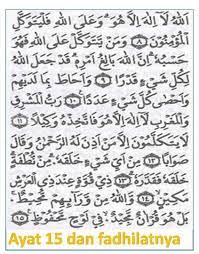 اللهُ لَا إِلَهَ إِلَّا هُوَ وَعَلَى اللهِ فَلْيَتَوَكَّلِ
الْمُؤْمِنُونَ ٨ وَمَنْ يَتَوَكَّلْ عَلَى اللهِ فَهُوَ
حَسْبُهُ إِنَّ اللهَ بَالِغُ أَمْرِهِ قَدْ جَعَلَ اللهُ
لِكُلِّ شَيْءٍ قَدْرًا ٩ وَأَحَاطَ بِمَا لَدَيْهِمْ
وَأَحْصَى كُلَّ شَيْءٍ عَدَدًا ١٠ رَبُّ الْمَشْرِقِ
وَالْمَغْرِبِ لَا إِلَهَ إِلَّا هُوَ فَاتَّخِذْهُ وَكِيلًا ١١
لَا يَتَكَلَّمُونَ إِلَّا مَنْ أَذِنَ لَهُ الرَّحْمَنُ وَقَالَ
صَوَابًا ١٢ مِنْ أَيِّ شَيْءٍ خَلَقَهُ مِنْ نُطْفَةٍ
خَلَقَهُ فَقَدَّرَهُ ١٣ ذِي قُوَّةٍ عِنْدَ ذِي الْعَرْشِ
مَكِينٍ ١٤ وَاللهُ مِنْ وَرَائِهِمْ مُحِيطٌ
بَلْ هُوَ قُرْآنٌ مَجِيدٌ فِي لَوْحٍ مَحْفُوظٍ ١٥
Ayat 15 dan fadhilatnya